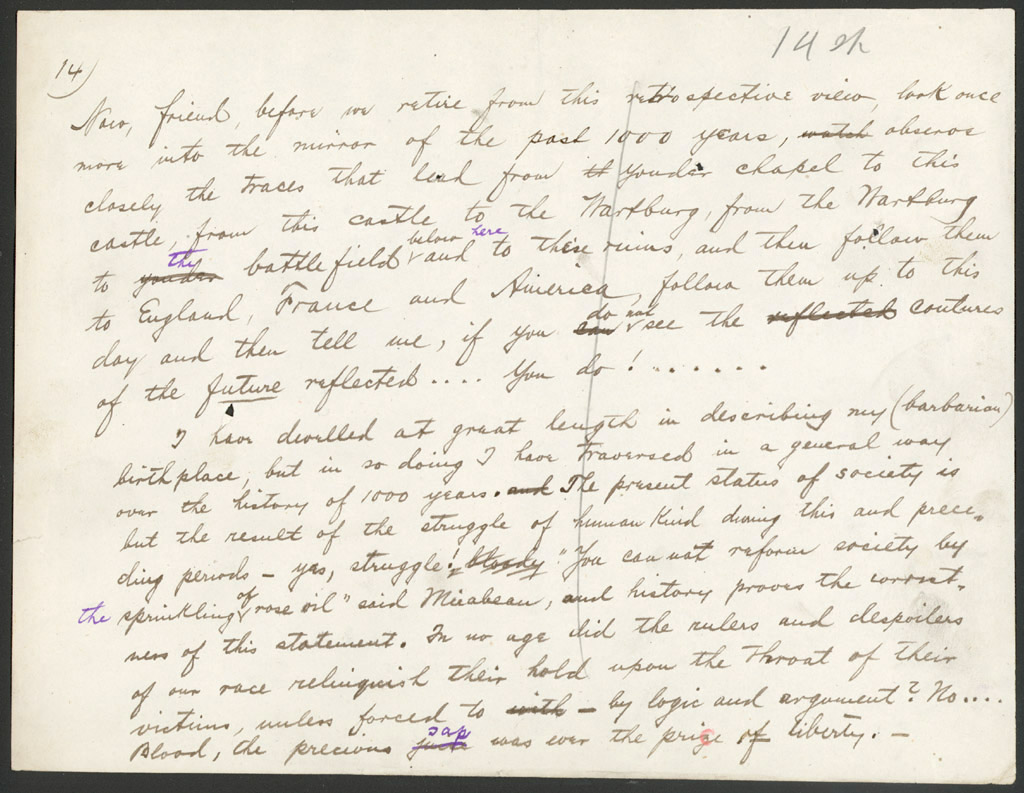 14 sh
14)
Now, friend, before we retire from this retrospective view, look once
more into the mirror of the past 1000 years, watch observe
closely the traces that lead from tt yonder chapel to this
castle, from this castle to the Wartburg, from the Wartburg
to yonder the battlefield below here and to these ruins, and then follow them
to England, France and America, follow them up to this
day and then tell me, if you can do not see the reflected contures
of the future reflected .... You do! .......
I have dwelled at great length in describing my (barbarian)
birthplace, but in so doing I have traversed in a general way
over the history of 1000 years. and The present status of society is
but the result of the struggle of human kind during this and prece-
ding periods – yes, struggle! bloody "You can not reform society by
the sprinkling of rose oil" said Mirabeau, and history proves the correct-
ness of this statement. In no age did the rulers and despoilers
of our race relinquish their hold upon the throat of their
victims, unless forced to with – by logic and argument? No ....
Blood, the precious juice sap was ever the prize of liberty. –